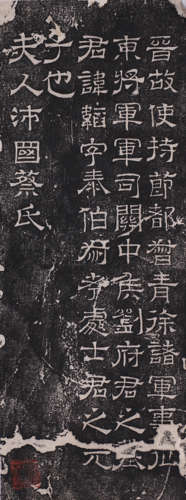 晉故使持節都督青徐諸軍事征
東將軍軍司關中侯劉府君之墓
君諱韜字泰伯猗考處士君之元
子也
夫人沛國蔡氏